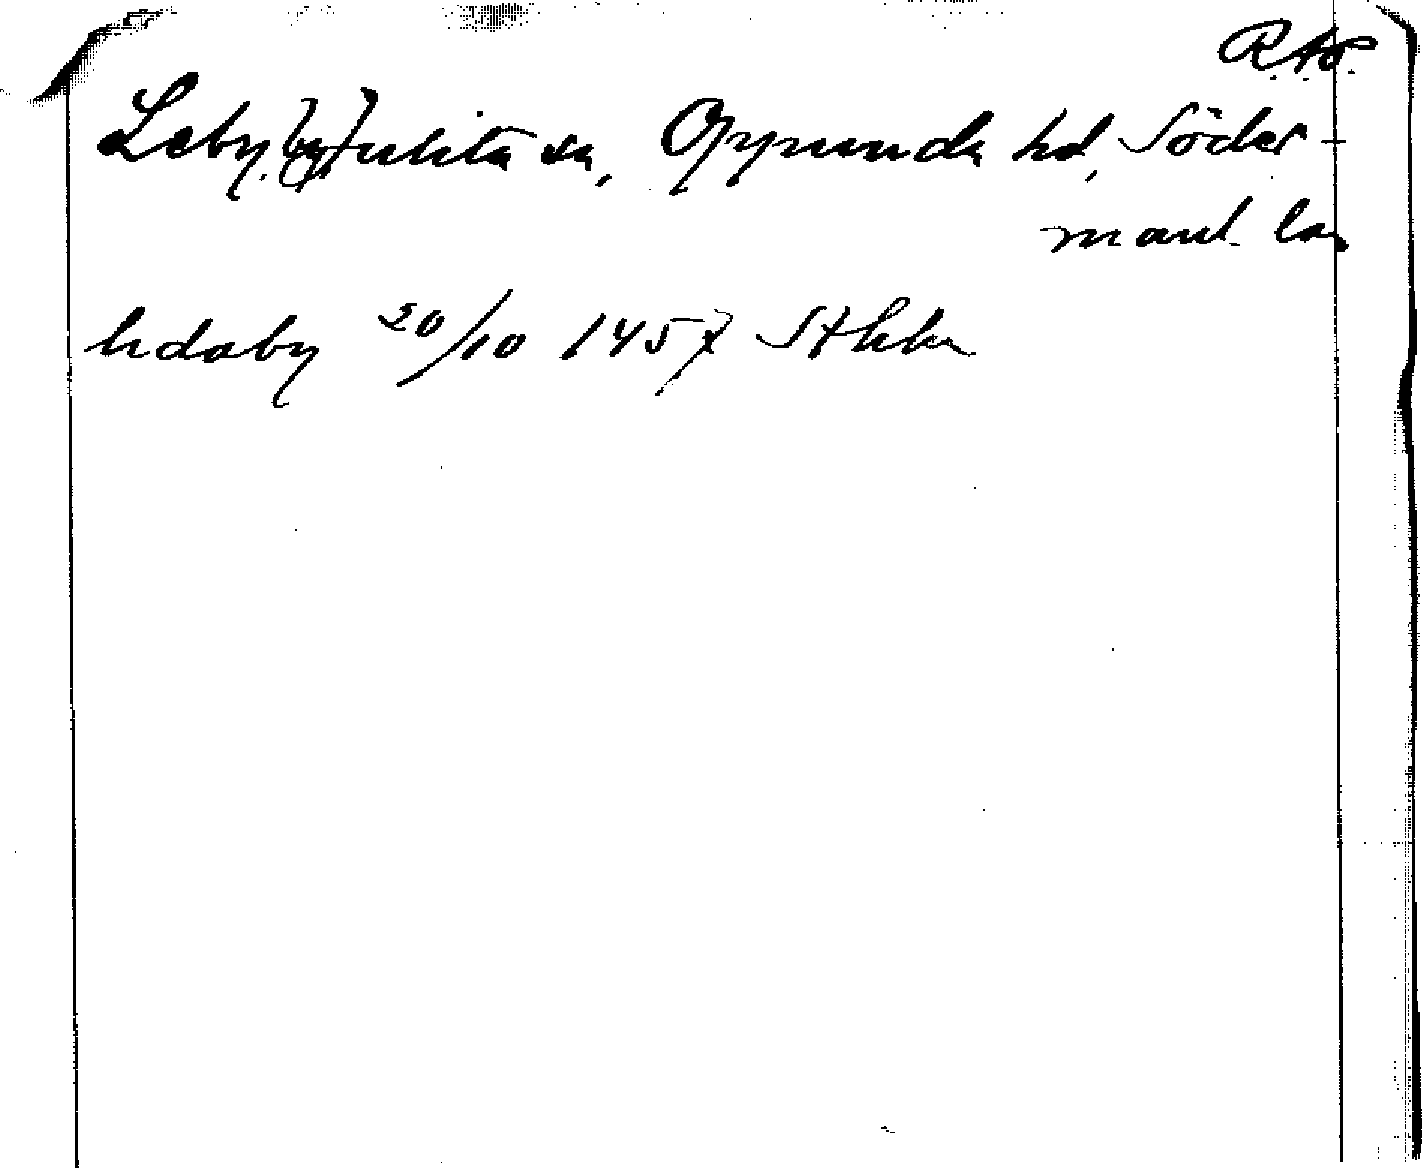 R.AÖ.
Leby (by) Julita sn, Oppunda hd, Söder-
manl. län
lidaby 20/10 1457 Sthlm